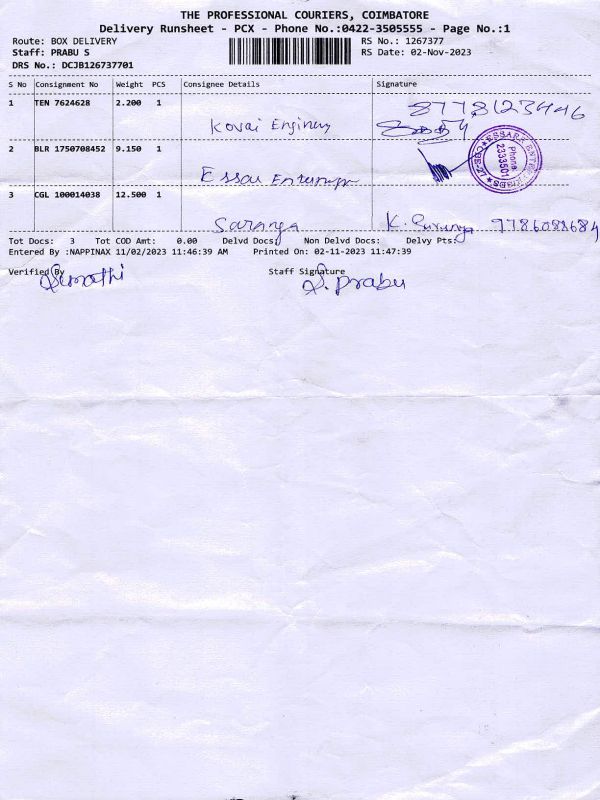 THE PROFESSIONAL COURIERS, COIMBATORE
Delivery Runsheet - PCX - Phone No.:0422-3505555 - Page No.:1
Route: BOX DELIVERY RS No.: 1267377
Staff: PRABU S RS Date: 02-Nov-2023
DRS No.: DCJB126737701
S No Consignment No Weight PCS Consignee Details Signature
1 TEN 7624628 2.200 1
8778123446
Kovai Enginery
2 BLR 1750708452 9.150 1
ESSARE ENTERPRISES CBE
Phone: 2333501
Essar Enterprise
3 CGL 100014038 12.500 1
Saranya K. Saranya
Tot Docs: 3 Tot COD Amt: 0.00 Delvd Docs: Non Delvd Docs: Delvy Pts:
Entered By :NAPPINAX 11/02/2023 11:46:39 AM Printed On: 02-11-2023 11:47:39
Verified By Staff Signature
Sumathi S. Prabu